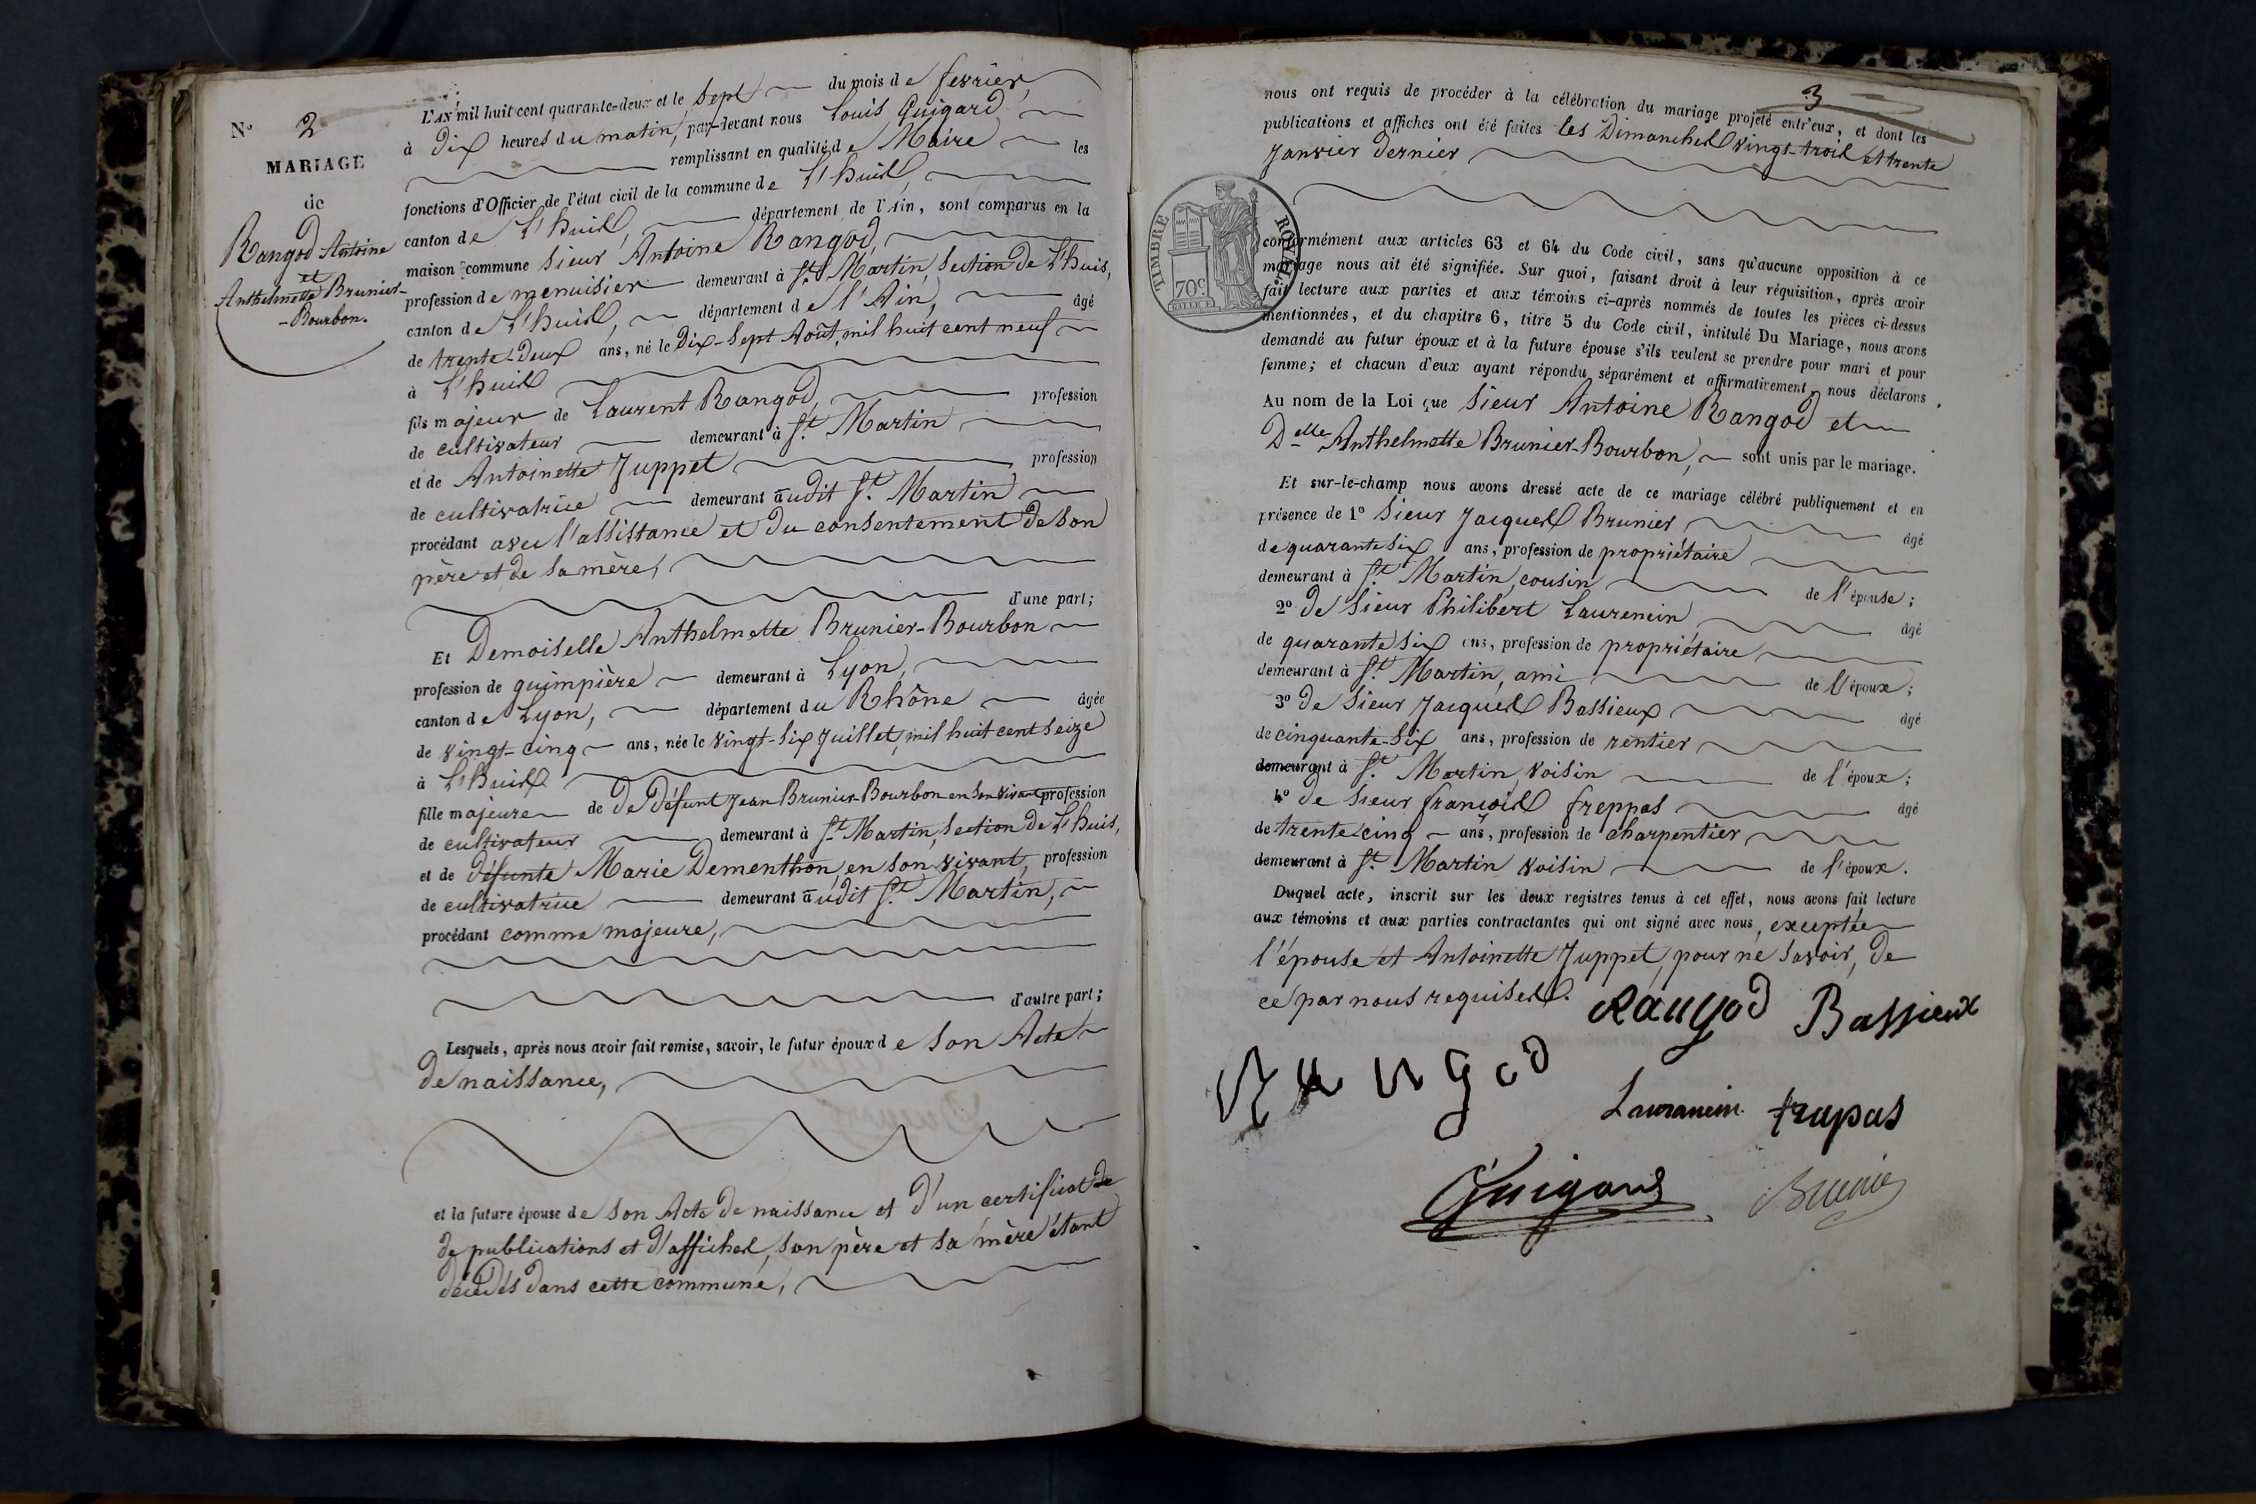 N° 2
MARIAGE
de
Rangod Antoine
et
Anthelmette Brunier-
-Bourbon.
L'AN mil huit cent quarante-deux et le sept du mois de fevrier,
à dix heures du matin, par-devant nous Louis Guigard
remplissant en qualité de Maire les
fonctions d'Officier de l'état civil de la commune de L'huis,
canton de L'huis, département de l'Ain, sont comparus en la
maison commune sieur Antoine Rangod,
profession de menuisier demeurant à St. Martin, section de L'huis,
canton de L'huis, département de l'Ain, âgé
de trente-deux ans, né le dix-sept Août, mil huit cent neuf
à L'huis
fils majeur de Laurent Rangod, profession
de cultivateur demeurant à St. Martin
et de Antoinette Juppet profession
de cultivatrice demeurant audit St. Martin
procédant avec l'assistance et du consentement de son
père et de sa mère,
d'une part;
Et Demoiselle Anthelmette Brunier-Bourbon
profession de guimpière demeurant à Lyon,
canton de Lyon, département du Rhône âgée
de vingt-cinq ans, née le vingt-six juillet, mil huit cent seize
à L'huis
fille majeure de de défunt Jean Brunier-Bourbon en son vivant profession
de cultivateur demeurant à St. Martin, section de L'huis,
et de défunte Marie Dementhon, en son vivant, profession
de cultivatrice demeurant audit St. Martin,
procédant comme majeure,
d'autre part;
Lesquels, après nous avoir fait remise, savoir, le futur époux de son Acte
de naissance,
et la future épouse de son Acte de naissance et d'un certificat de
de publications et d'affiches, son père et sa mère étant
décédés dans cette commune,
3
nous ont requis de procéder à la célébration du mariage projeté entr'eux, et dont les
publications et affiches ont été faites les Dimanches vingt-trois et trente
janvier dernier
TIMBRE ROYAL
70c
conformément aux articles 63 et 64 du Code civil, sans qu'aucune opposition à ce
mariage nous ait été signifiée. Sur quoi, faisant droit à leur réquisition, après avoir
fait lecture aux parties et aux témoins ci-après nommés de toutes les pièces ci-dessus
mentionnées, et du chapitre 6, titre 5 du Code civil, intitulé Du Mariage, nous avons
demandé au futur époux et à la future épouse s'ils veulent se prendre pour mari et pour
femme; et chacun d'eux ayant répondu séparément et affirmativement, nous déclarons
Au nom de la Loi que sieur Antoine Rangod et
Delle Anthelmette Brunier-Bourbon, sont unis par le mariage.
Et sur-le-champ nous avons dressé acte de ce mariage célébré publiquement et en
présence de 1° sieur Jacques Brunier, âgé
de quarante six ans, profession de propriétaire
demeurant à St. Martin, cousin de l'épouse;
2° de sieur Philibert Laurencin âgé
de quarante six ans, profession de propriétaire
demeurant à St. Martin, ami de l'époux;
3° de sieur Jacques Bassieux âgé
de cinquante-six ans, profession de rentier
demeurant à St. Martin, voisin de l'époux;
4° de sieur françois freppas âgé
de trente cinq ans, profession de charpentier
demeurant à St. Martin voisin de l'époux.
Duquel acte, inscrit sur les deux registres tenus à cet effet, nous avons fait lecture
aux témoins et aux parties contractantes qui ont signé avec nous, exceptée
l'épouse et Antoinette Juppet, pour ne savoir, de
ce par nous requises.
Rangod Bassieux
Rangod
Laurancin frapas
Guigard Brunier